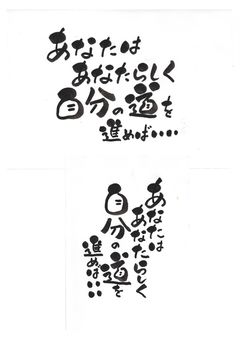 あなたは
あなたらしく
自分の道を
進めばいい
あなたは
あなたらしく
自分の道を
進めばいい